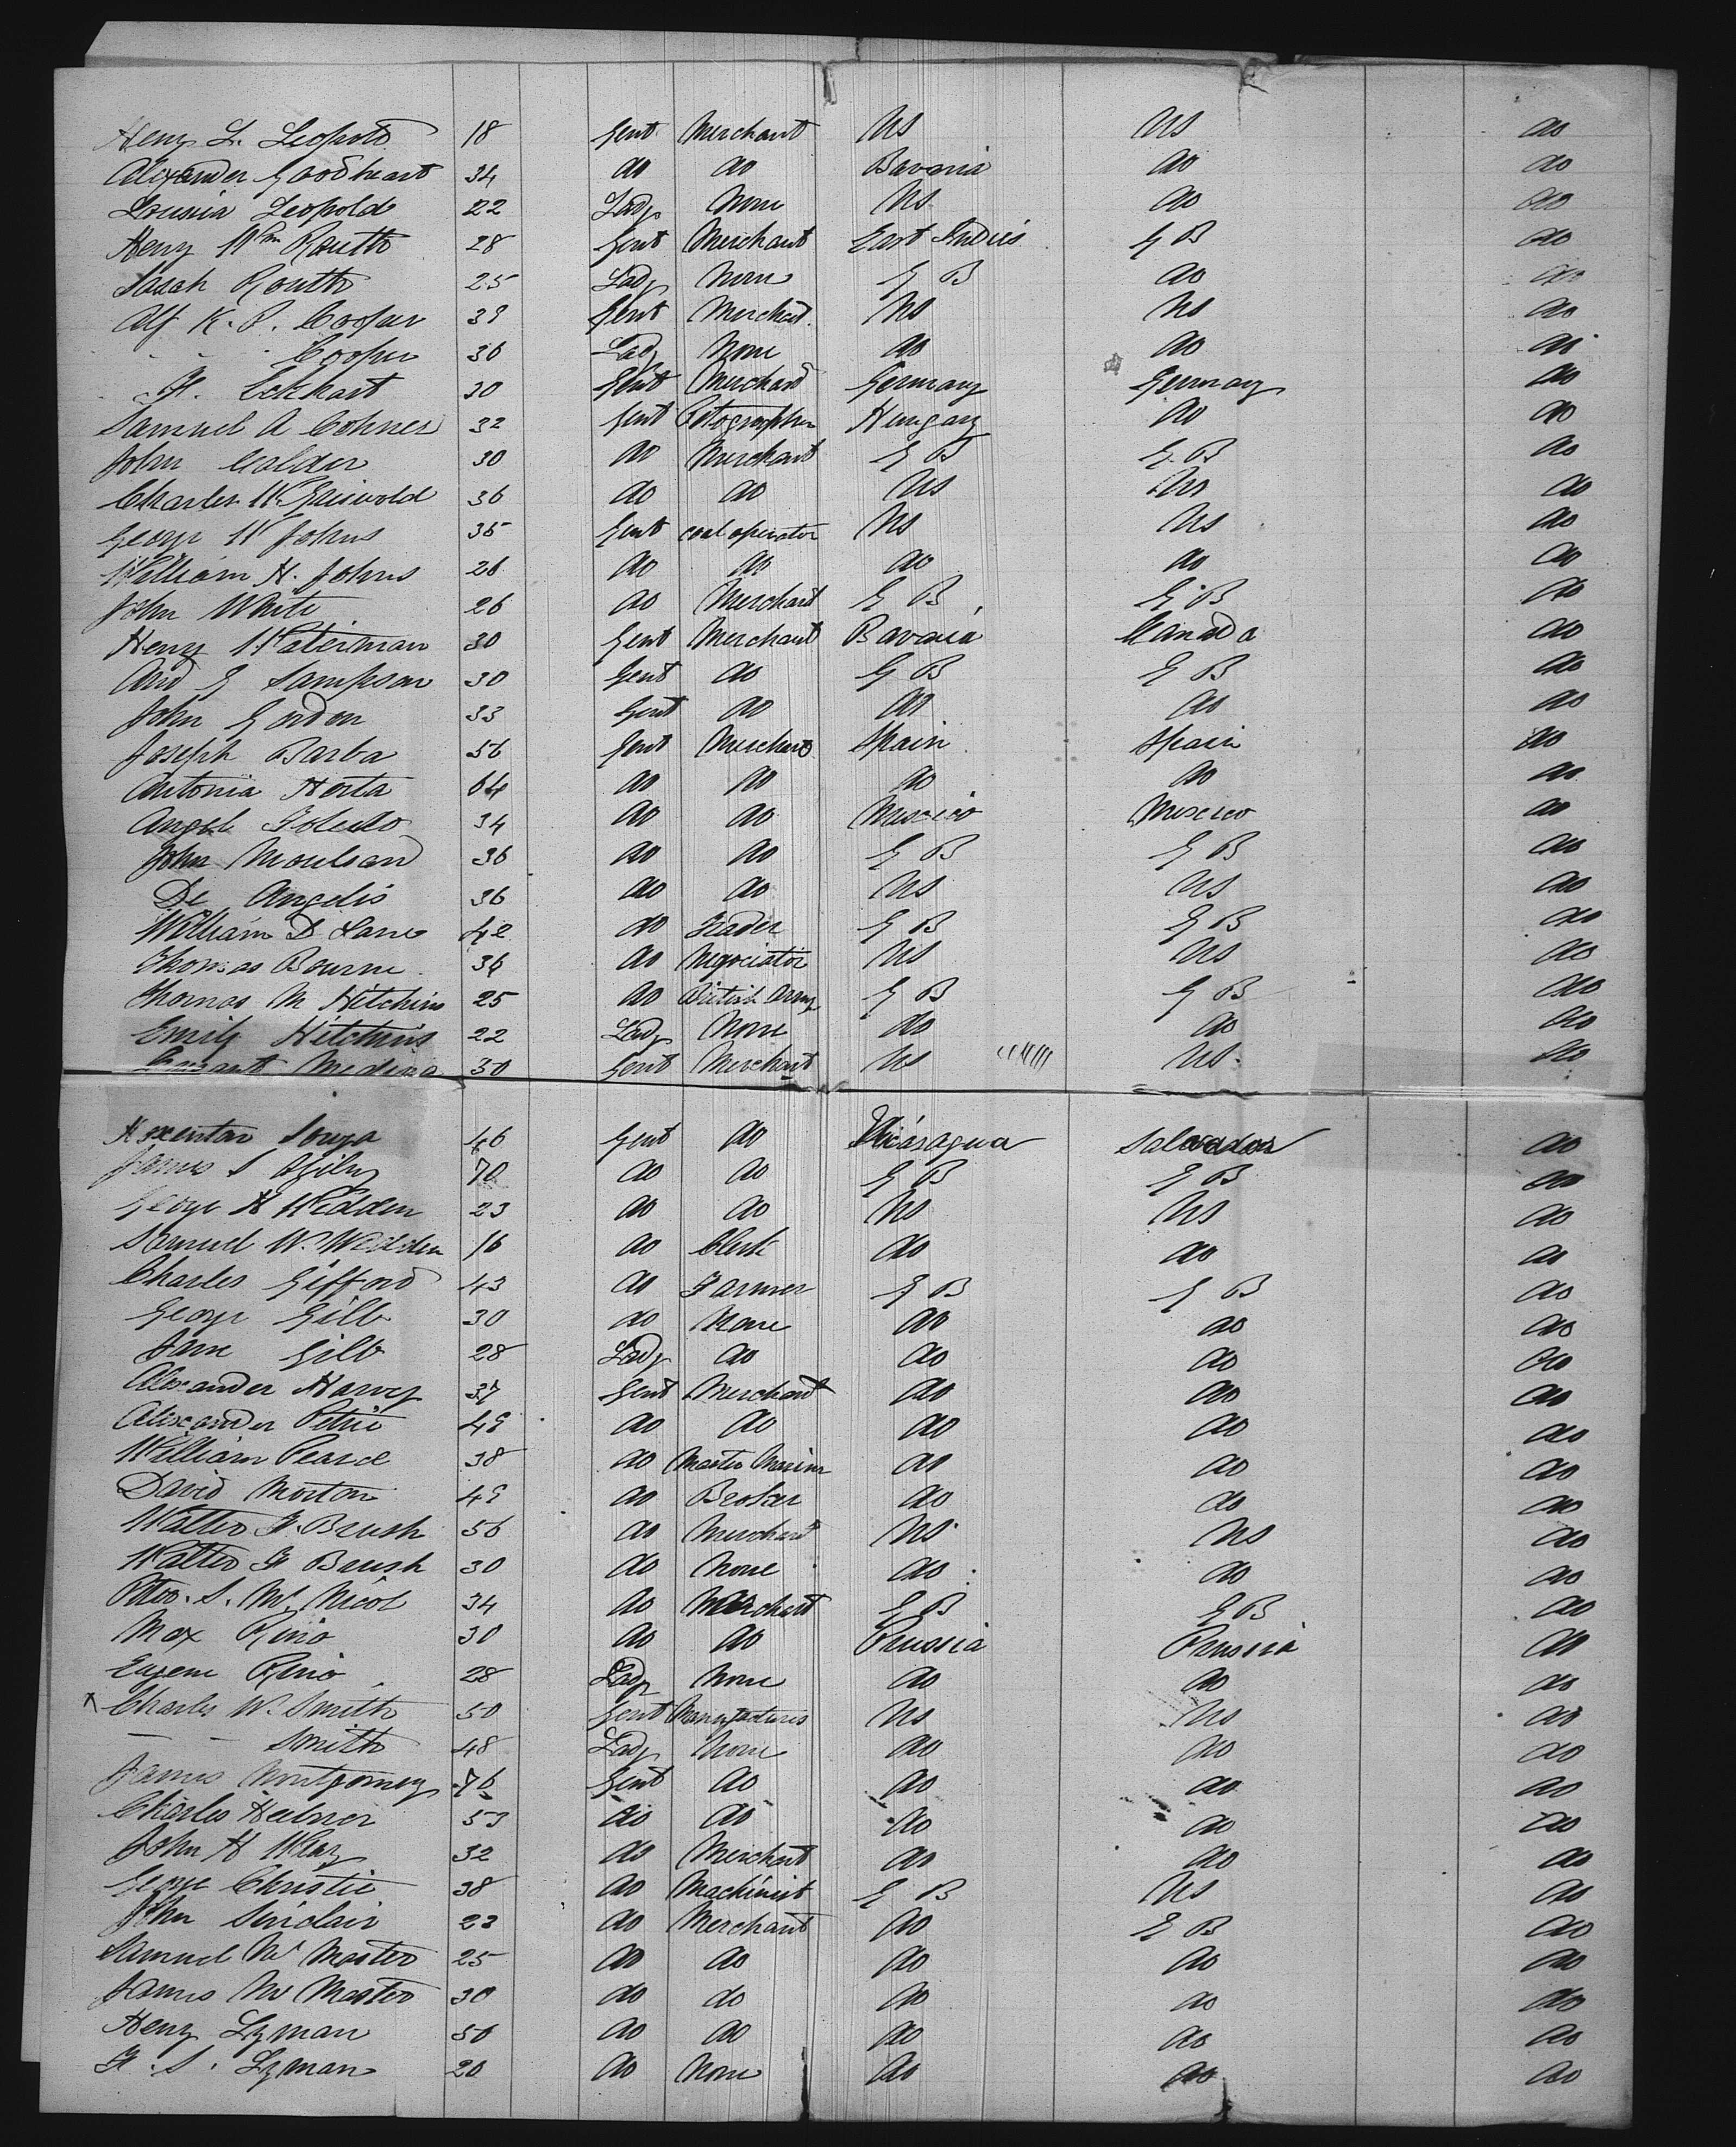 Henry L. Leopold 18 Gent Merchant US US do
Alexander Goodheart 34 do do Bavaria do do
Lousia Leopold 22 Lady None US do do
Henry Wm Routh 28 Gent Merchant East Indies G B do
Sarah Routh 25 Lady None G B do do
Alf K. P. Cooper 39 Gent Merchant US US do
" " Cooper 36 Lady None do do do
H. Eckhart 30 Gent Merchant Germany Germany do
Samuel A Cohner 32 Gent Potographer Hungary do do
John Calder 30 do Merchant G B G. B do
Charles W. Griswold 36 do do US US do
George W Johns 35 Gent coal operator US US do
William H. Johns 26 do do do do do
John White 26 do Merchant G B G B do
Henry Waterman 30 Gent Merchant Bavaria Canada do
And G Sampson 30 Gent do G B G B do
John Gordon 33 Gent do do do do
Joseph Barba 56 Gent Merchant Spain Spain do
Antonia Horta 64 do do do do do
Angel Toledo 34 do do Mexico Mexico do
John Moulsand 36 do do G B G B do
De Angelis 36 do do US US do
William D Lane 42 do Trader G B G B do
Thomas Bourne 36 do Negociator US US do
Thomas M Hitchins 25 do British Army G B G B do
Emily Hitchins 22 Lady None do do do
Medina 30 Gent Merchant US US do
Souza 46 Gent do Nicaragua Salvador do
James S Ogilvy 70 do do G B G B do
George H Wedden 23 do do US US do
Samuel W. Wedden 16 do Clerk do do do
Charles Gifford 43 do Farmer G B G B do
George Gilb 30 do None do do do
Jane Gilb 28 Lady do do do do
Alexander Harvey 37 Gent Merchant do do do
Alexander Petrie 49 do do do do do
William Pearce 38 do Master Mariner do do do
David Morton 49 do Broker do do do
Walter F. Brush 56 do Merchant US US do
Walter F Brush 30 do None do do do
Peter. S. Mc Nicol 34 do Merchant G B G B do
Max Rino 30 do do Prussia Prussia do
Eugene Rino 28 Lady None do do do
x Charles W. Smith 50 Gent Manufactures US US do
— — Smith 48 Lady None do do do
James Montgomery 76 Gent do do do do
Charles Hebner 53 do do do do do
John H Wray 32 do Merchant do do do
George Christie 38 do Machinist G B US do
John Sinclair 23 do Merchant do G B do
Samuel Mc Master 25 do do do do do
James Mc Master 30 do do do do do
Henry Lyman 56 do do do do do
F. S. Lyman 20 do None do do do